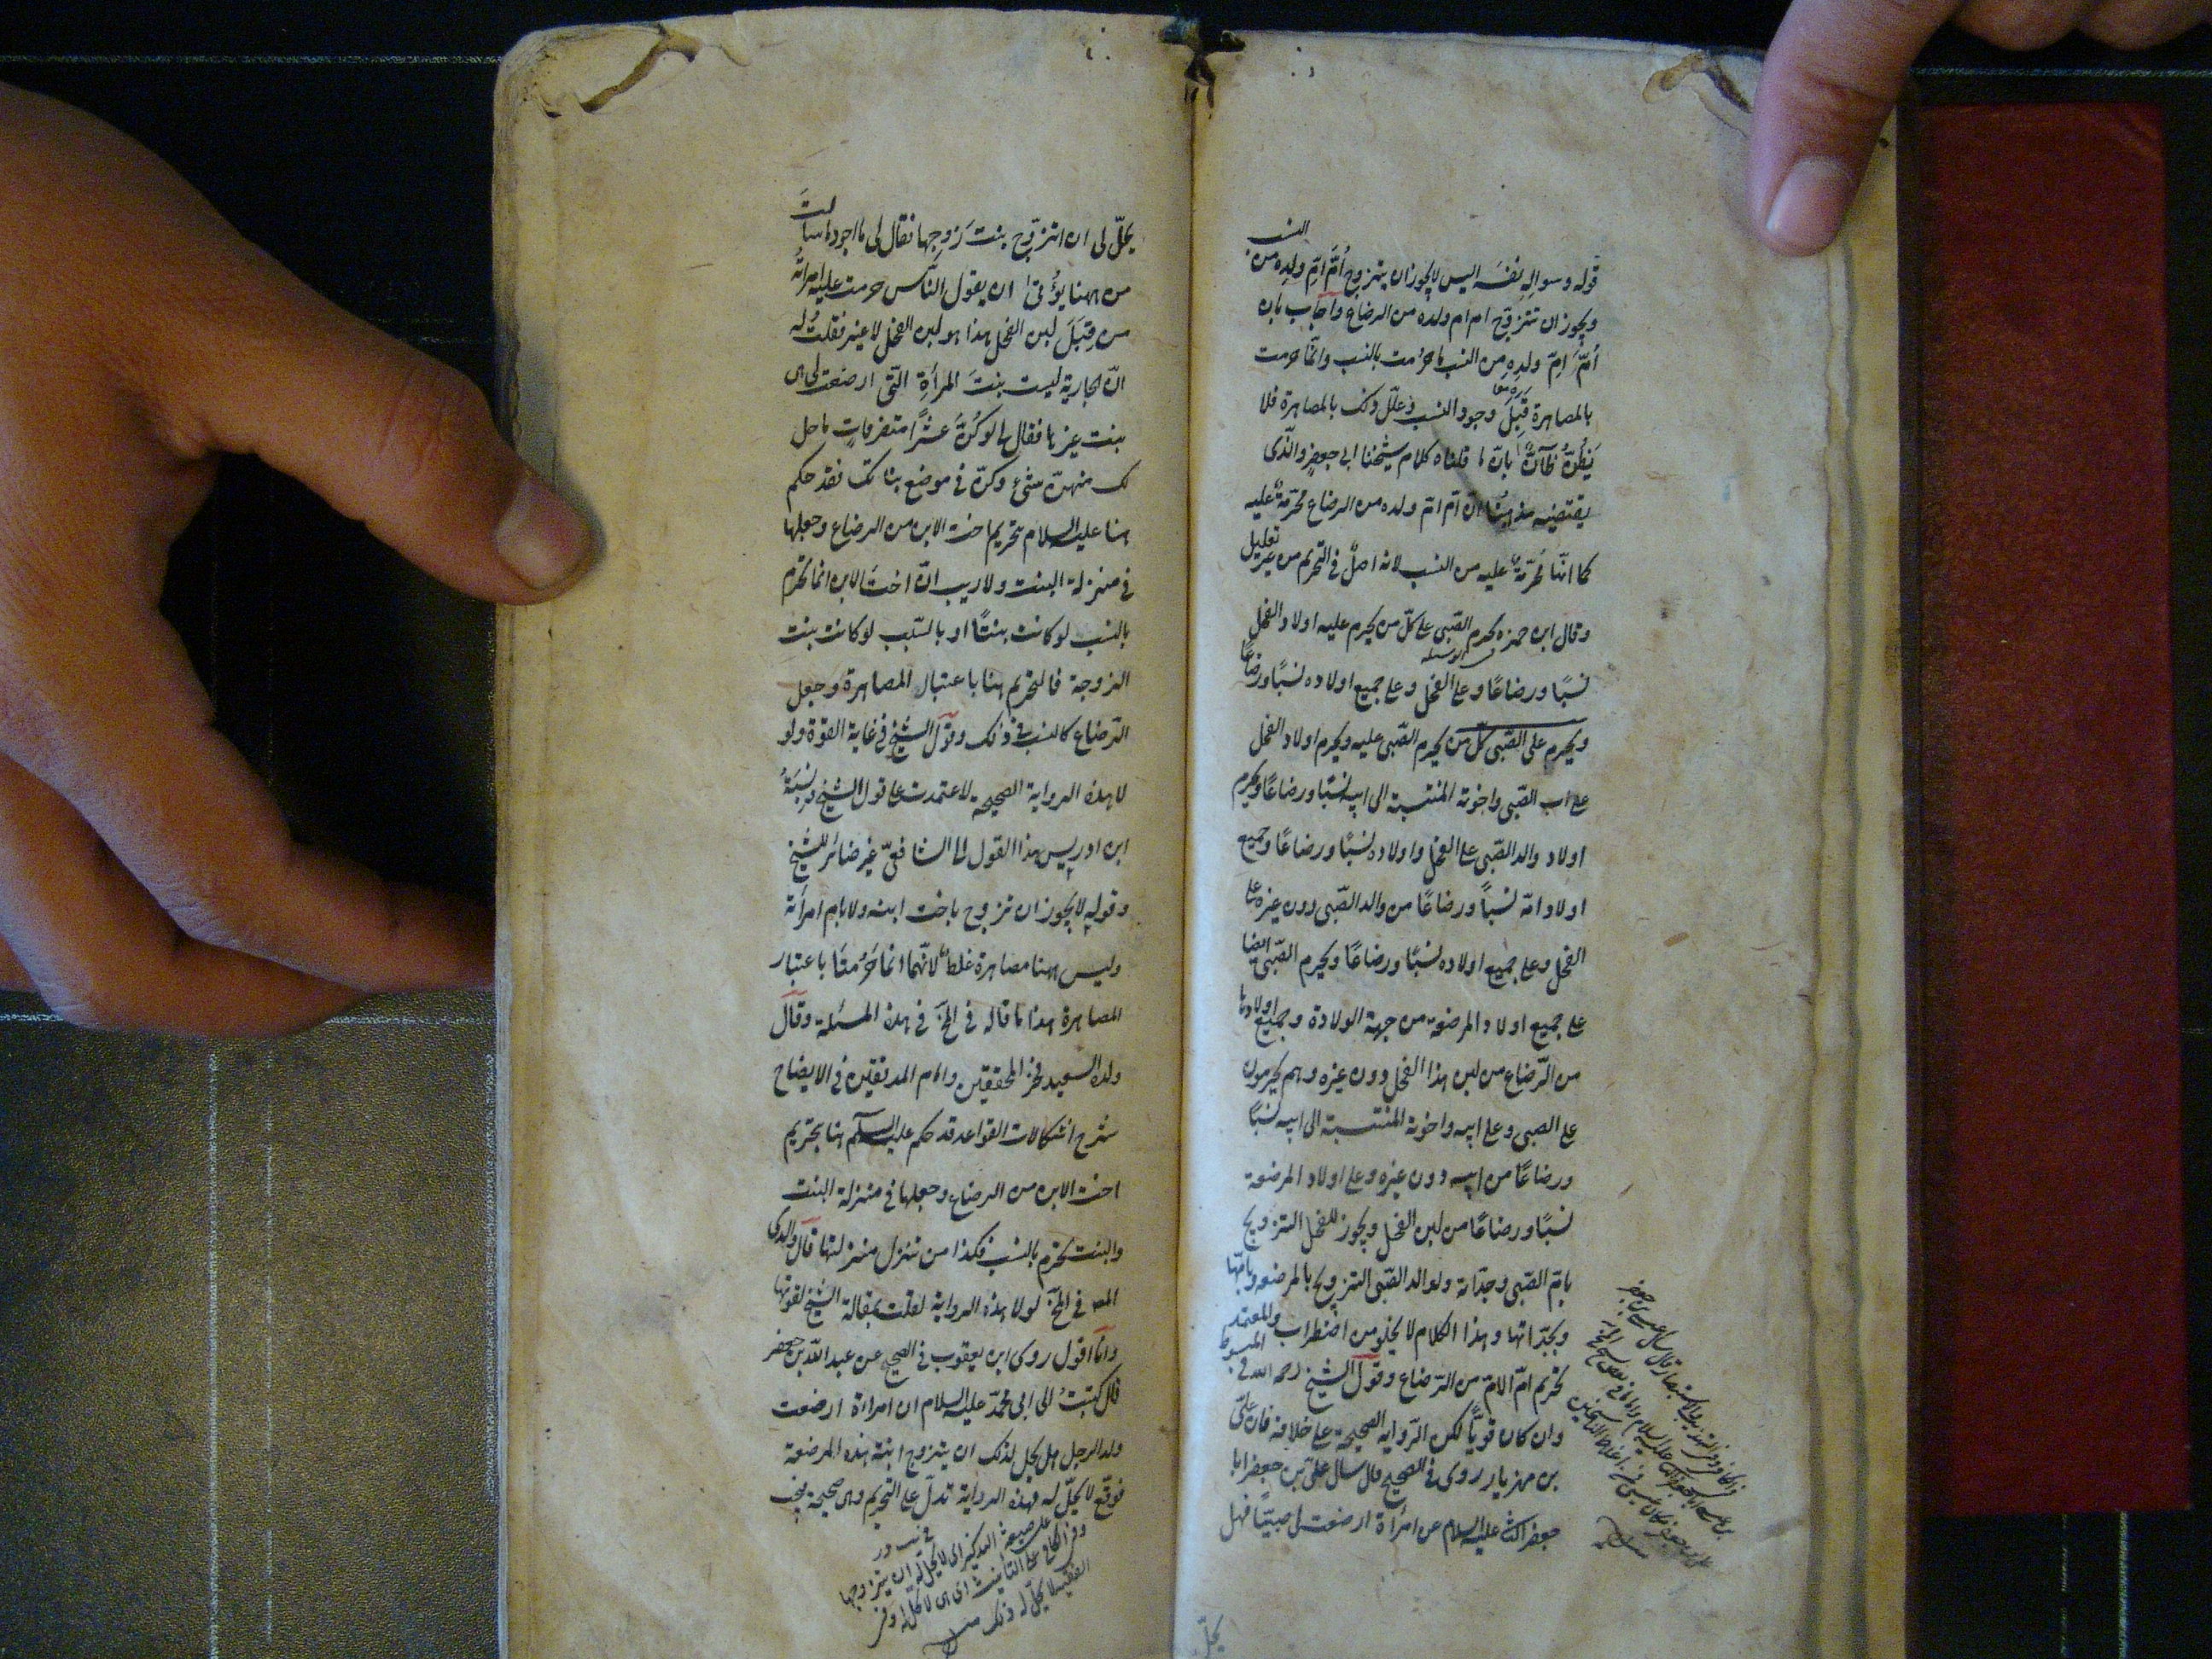 قوله وسواله نفسه اليس لا يجوز ان يتزوج اُمّ امّ ولده من النسب
ويجوز ان تتزوّج ام ام ولده من الرضاع واجاب بان
اُمّ امّ ولدِه من النسب ما حرُمت بالنسب وانّما حرمت
بالمصاهرة قبل وجود النسب وعلّل ذلك بالمصاهرة فلا
يَظُنّ ظانّ بانّ ما قلناه كلام شيخنا ابى جعفر والّذى
يقتضيه مذهبُنا انّ امّ امّ ولده من الرضاع محرّمةٌ عليه
كما انّها مُحرّمةٌ عليه من النسب لانه اصلٌ فى التحريم من غير تعليل
وقال ابن حمزه يحرم الصّبى على كلّ من يحرم عليه اولاد الفحل
نسبًا ورضاعًا وعلى الفحل وعلى جميع اولاده نسبًا ورضاعًا
ويحرم على الصّبى كلّ من يحرم الصّبى عليه ويحرم اولاد الفحل
على اب الصّبى واخوته المنتسبة الى ابيه نسبًا ورضاعًا ويحرم
اولاد والد الصّبى على الفحل واولاده نسبًا ورضاعًا وجميع
اولاد امّه نسبًا ورضاعًا من والد الصّبى دون غيره على
الفحل وعلى جميع اولاده نسبًا ورضاعًا ويحرم الصّبى ايضا
على جميع اولاد المرضعة من جهة الولادة وجميع اولادها
من الرّضاع من لبن هذا الفحل دون غيره وهم يحرمون
على الصبى وعلى ابيه واخوته المنتسبة الى ابيه نسبًا
ورضاعًا من ابيه دون غيره وعلى اولاد المرضعة
نسبًا ورضاعًا من لبن الفحل ويجوز للفحل التزويج
بامّ الصّبى وجدّاته ولوالد الصّبى التزويج بالمرضعه وبامّها
وبجدّاتها وهذا الكلام لا يخلو من اضطراب والمعتمد
تحريم امّ الامّ من الرّضاع وقول الشيخ رحمه الله فى المبسوط
وان كان قويًّا لكن الرّواية الصحيحة على خلافه فان علىّ
بن مهزيار روى فى الصحيح قال سال علىّ بن جعفر ابا
جعفر الثانى عليه السلام عن امرأة ارضعت لى صبيًّا فهل
يحلّ
يحلّ لى ان اتزوّج بنت زوجها فقال لى ما اجود ما سالت
من ههنا يؤتى ان يقول النّاس حرمت عليه امرأته
من قِبَل لبن الفحل هذا هو لبن الفحل لا غير فقلتُ له
انّ الجارية ليست بنتَ المرأةِ التّى ارضعت لى هى
بنت غيرها فقال لو كُنَّ عشرًا متفرقاتٍ ما حل
لك منهنّ شىء وكنّ فى موضع بناتك فقد حكم
هنا عليه السلام تحريم اخت الابن من الرضاع وجعلها
فى منزلة البنت ولا ريب انّ اختَ الابن انما تحرم
بالنسب لو كانت بنتًا او بالسّبب لو كانت بنت
الزوجة فالتحريم هنا باعتبار المصاهرة وجعل
الرّضاع كالنسب فى ذلك وقول الشيخ فى غاية القوة ولو
لا هذه الرواية الصحيحة لاعتمدت على قول الشيخ ونسبةُ
ابن ادريس هذا القول الى الشافعىّ غير ضائر للشيخ
وقوله لا يجوز ان تزوج باخت ابنه ولا بام امرأته
وليس ههنا مصاهرة غلطٌ لانّهما انما حَرُمتَا باعتبار
المصاهرة هذا ما قاله فى المخ فى هذه المسئلة وقال
ولده السعيد فخر المحققين وامام المدققين فى الايضاح
شرح اشكالات القواعد قد حكم عليه السلام هنا بتحريم
اخت الابن من الرضاع وجعلها فى منزلة البنت
والبنت تحرم بالنسب فكذا من تنزل منزلتها قال والدى
المص فى المخ لولا هذه الرواية لقلت بمقالة الشيخ لقوتها
وانا اقول روى ابن يعقوب فى الصحيح عن عبد الله بن جعفر
قال كتبتُ الى ابى محمّد عليه السلام ان امراة ارضعت
ولد الرجل هل يحل لذلك ان يتزوج ابنة هذه المرضعة
فوقّع لا يحلّ له فهذه الرواية تدلّ على التحريم وهى صحيحة